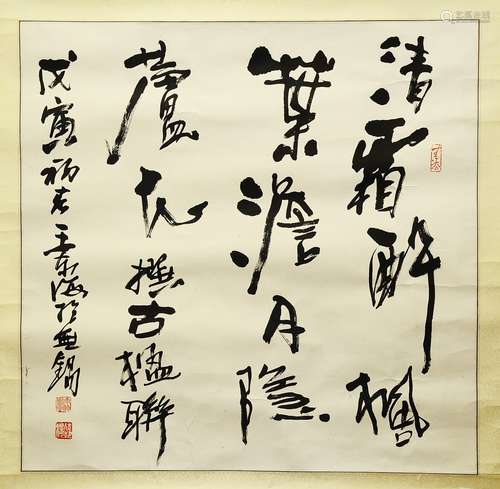 清霜醉楓
葉澹月隱
蘆花 撫古楹聯
戊寅初春王東海於無錫